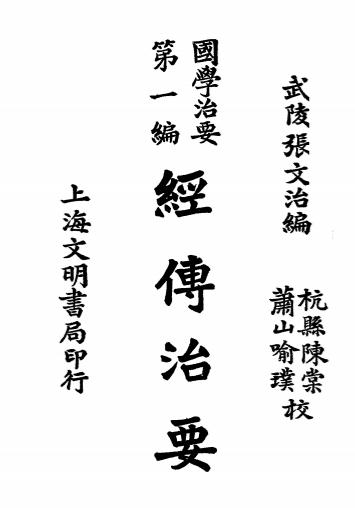 武陵張文治編
杭縣陳棠
蕭山喻璞
校
國學治要
第一編
經傳治要
上海文明書局印行